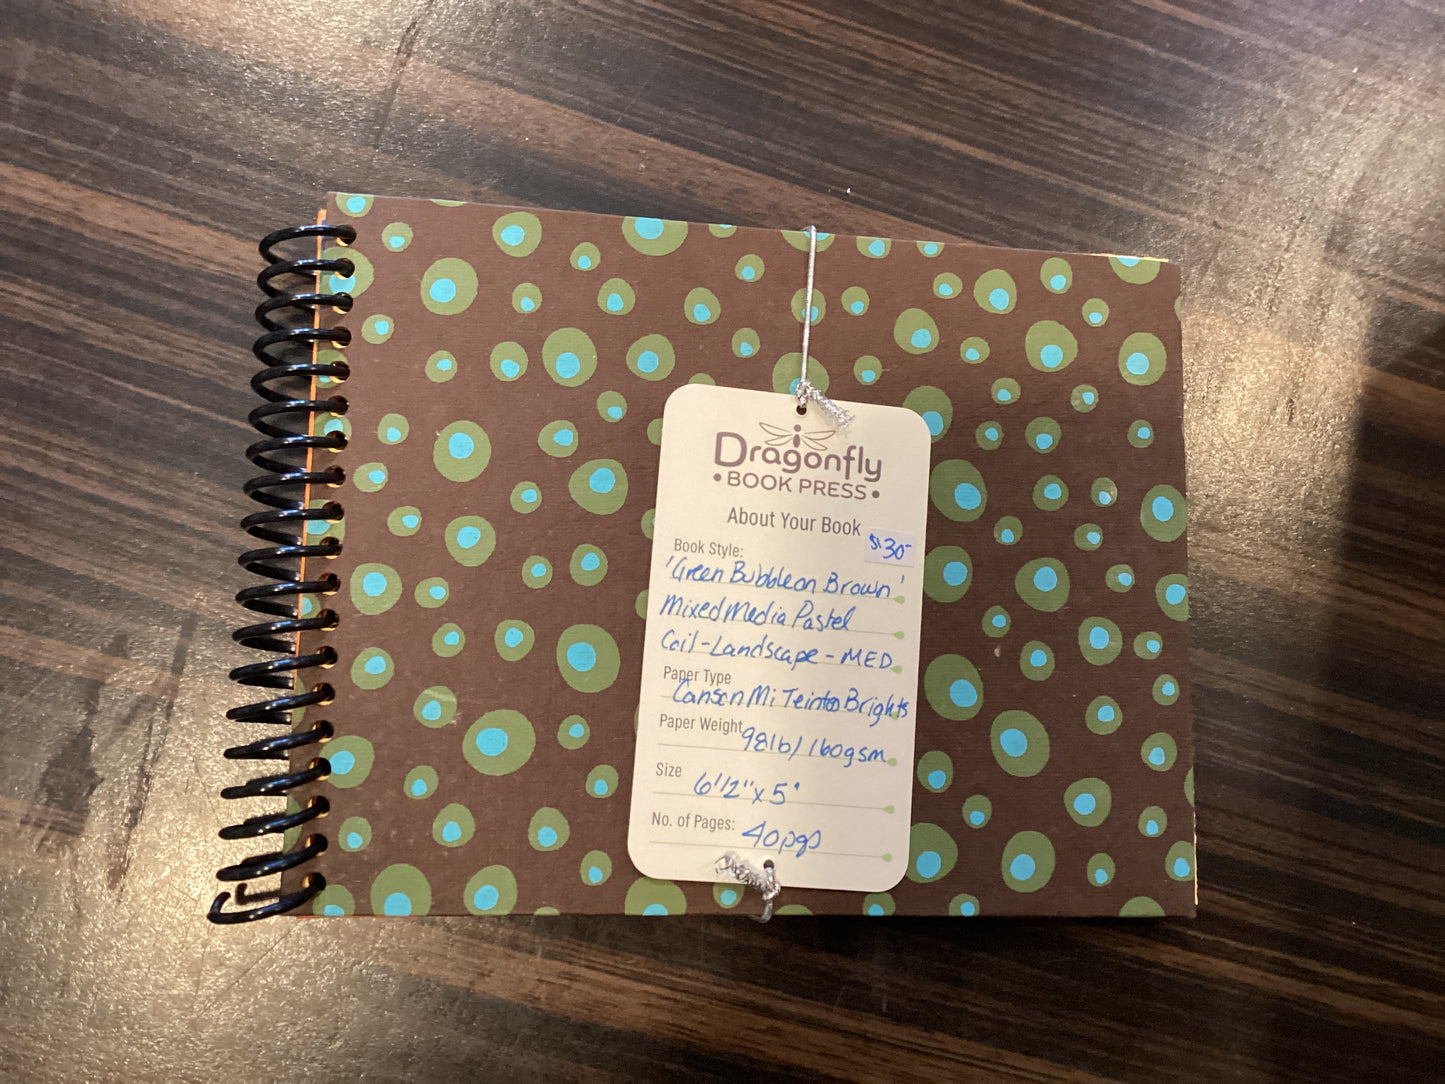 Dragonfly
• BOOK PRESS •
About Your Book
$30-
Book Style:
'Green Bubble on Brown'
Mixed Media Pastel
Coil-Landscape-MED
Paper Type
Canson Mi Teintes Brights
Paper Weight
98lb/160gsm
Size
6 1/2" x 5"
No. of Pages:
40pgs